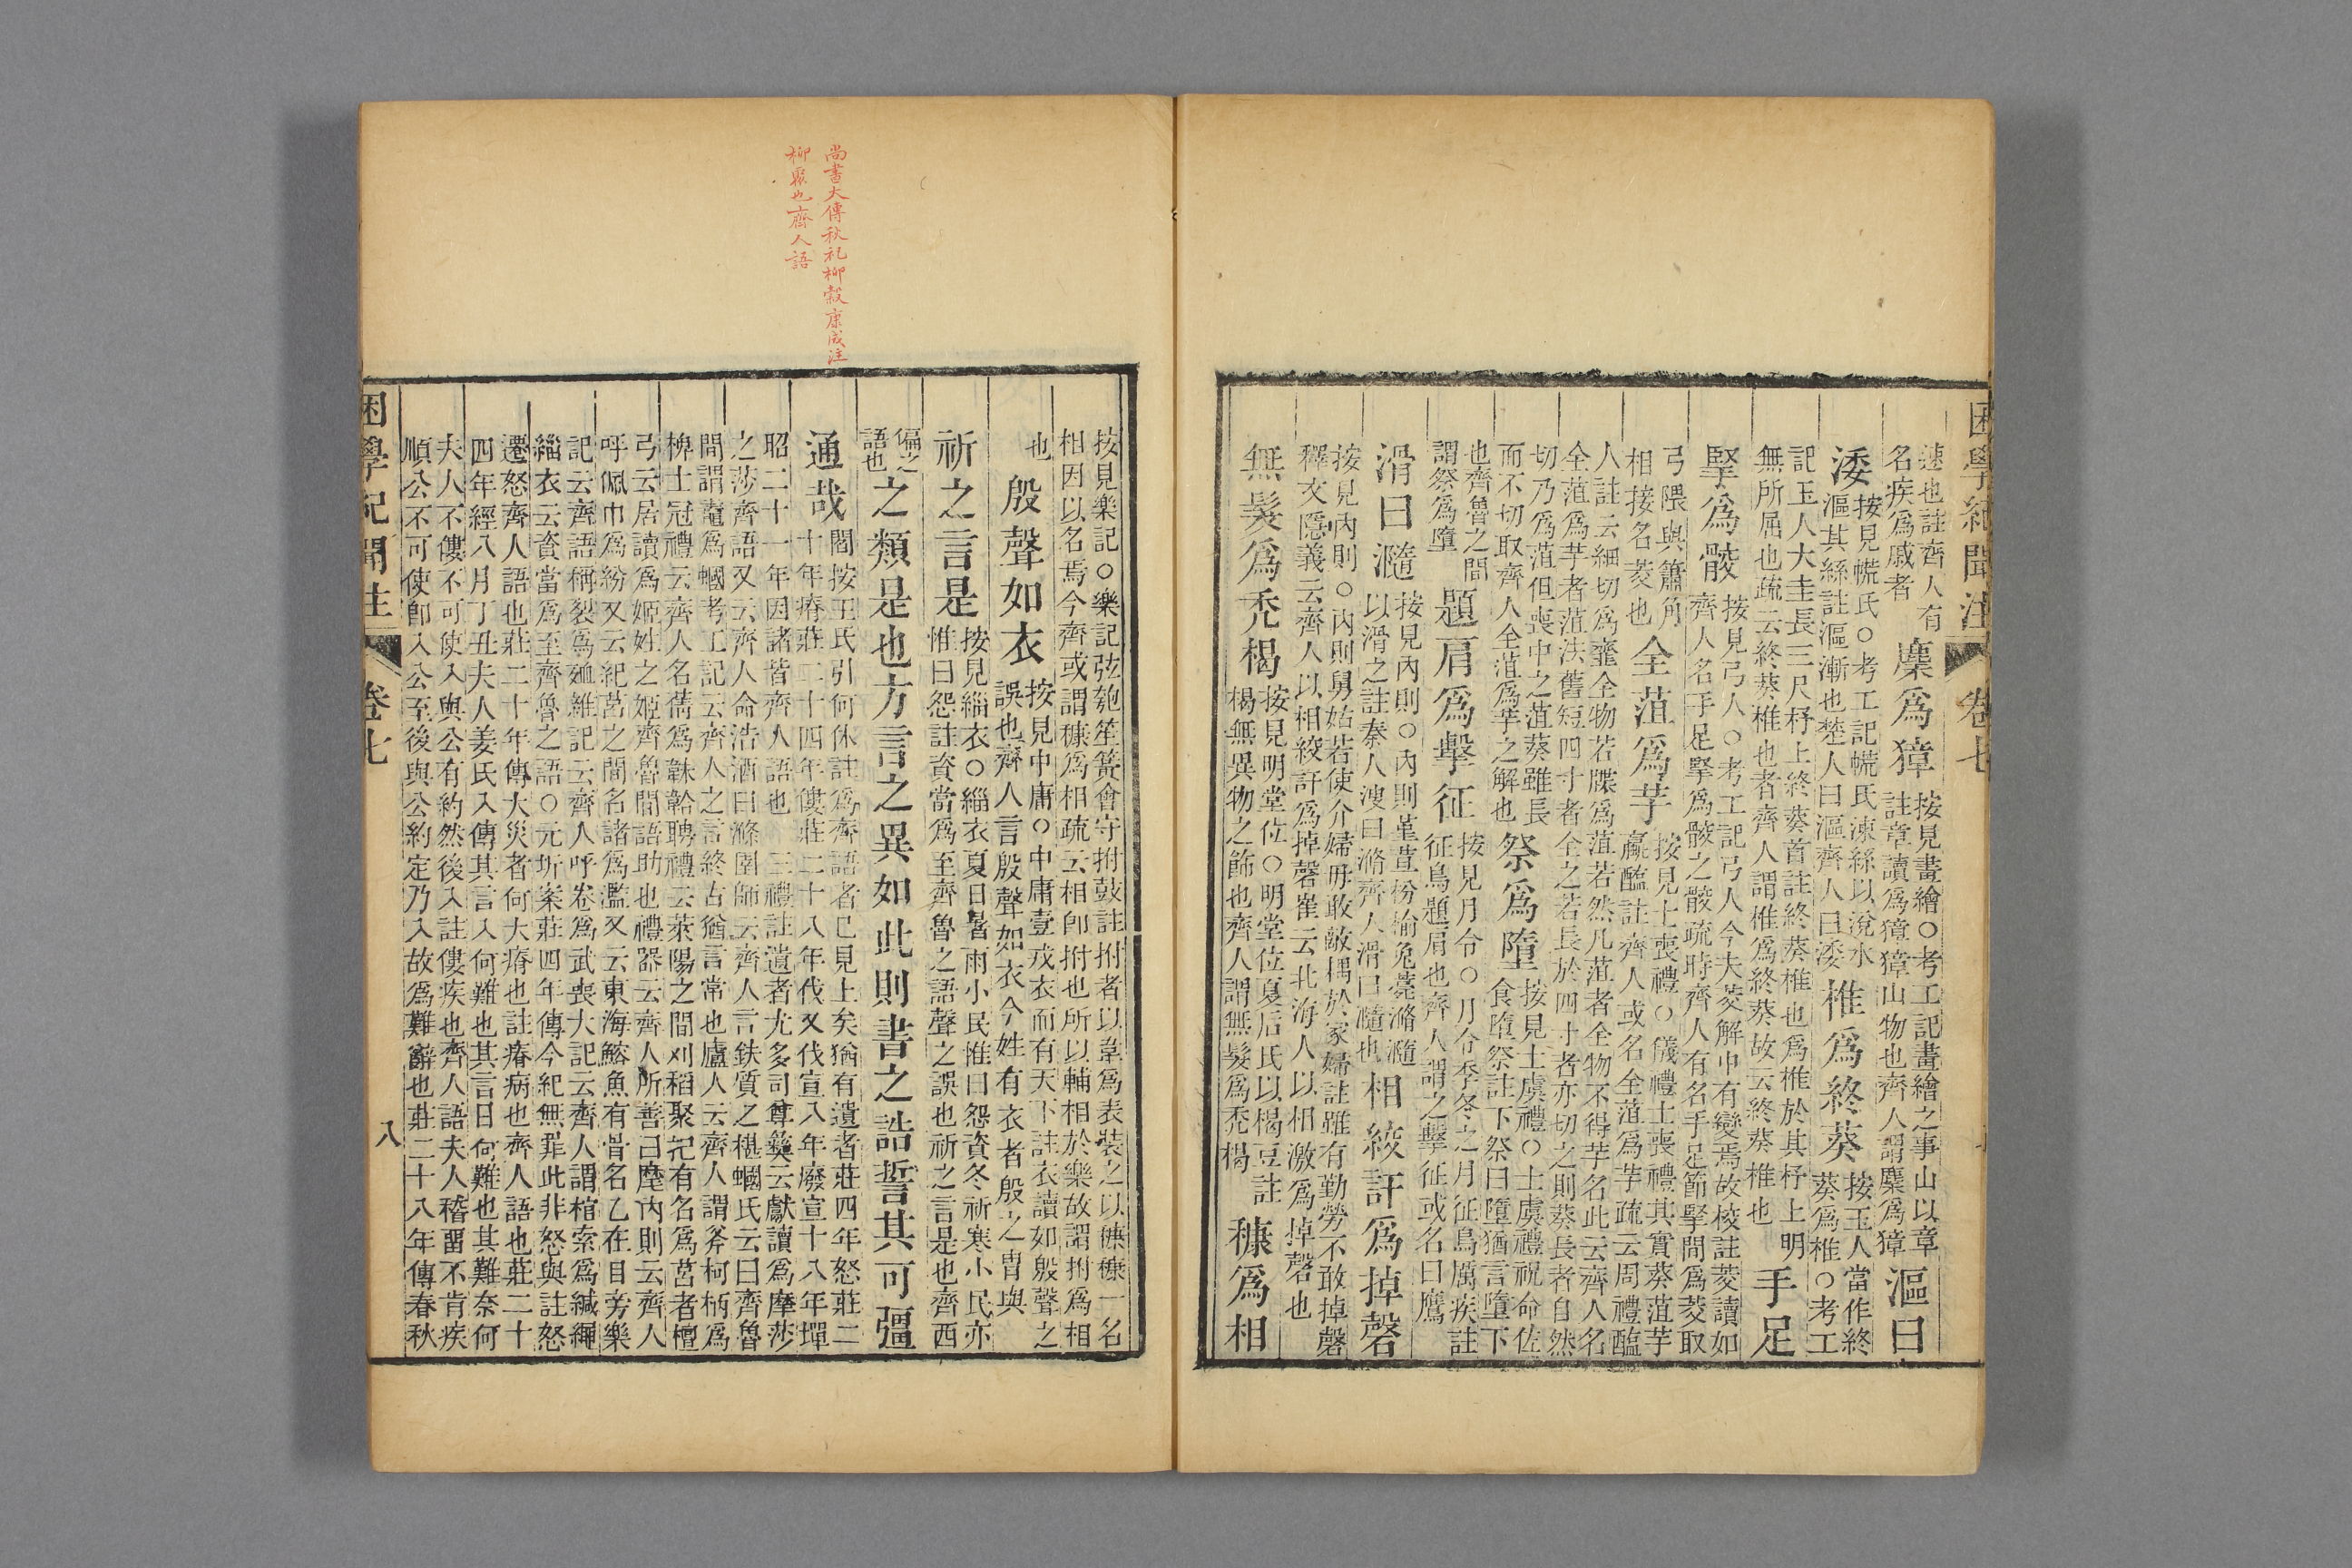 困學紀聞注 卷七
速也註齊人有
名疾爲戚者
麇爲獐
按見畫繪○考工記畫繪之事山以章
註章讀爲獐獐山物也齊人謂麇爲獐
漚曰
涹
按見㡛氏○考工記㡛氏湅絲以涚水
漚其絲註漚漸也楚人曰漚齊人曰涹
椎爲終葵
按玉人當作終
葵爲椎○考工
記玉人大圭長三尺杼上終葵首註終葵椎也爲椎於其杼上明
無所屈也疏云終葵椎也者齊人謂椎爲終葵故云終葵椎也
手足
掔爲骹
按見弓人○考工記弓人今夫茭解中有變焉故校註茭讀如
齊人名手足掔爲骹之骹疏時齊人有名手足節掔間爲茭取
弓隈與簫角
相接名茭也
全菹爲芋
按見士喪禮○儀禮士喪禮其實葵菹芋
蠃醢註齊人或名全菹爲芋疏云周禮醢
人註云細切爲韲全物若牒爲菹若然凡菹者全物不得芋名此云齊人名
全菹爲芋者菹法舊短四寸者全之若長於四寸者亦切之則葵長者自然
切乃爲菹但喪中之菹葵雖長
而不切取齊人全菹爲芋之解也
祭爲墮
按見士虞禮○士虞禮祝命佐
食墮祭註下祭曰墮猶言墮下
也齊魯之間
謂祭爲墮
題肩爲擊征
按見月令○月令季冬之月征鳥厲疾註
征鳥題肩也齊人謂之擊征或名曰鷹
滑曰瀡
按見內則○內則堇荁枌榆免薧滫瀡
以滑之註秦人溲曰滫齊人滑曰瀡也
相絞訐爲掉磬
按見內則○內則舅姑若使介婦毋敢敵耦於冢婦註雖有勤勞不敢掉磬
釋文隱義云齊人以相絞訐爲掉磬崔云北海人以相激爲掉磬也
無髮爲禿楬
按見明堂位○明堂位夏后氏以楬豆註
楬無異物之飾也齊人謂無髮爲禿楬
穅爲相
尚書大傳秋祀柳穀康成注
柳聚也齊人語
按見樂記○樂記弦匏笙簧會守拊鼓註拊者以韋爲表裝之以穅穅一名
相因以名焉今齊或謂穅爲相疏云相卽拊也所以輔相於樂故謂拊爲相
也
殷聲如衣
按見中庸○中庸壹戎衣而有天下註衣讀如殷聲之
誤也齊人言殷聲如衣今姓有衣者殷之冑與
祈之言是
按見緇衣○緇衣夏日暑雨小民惟曰怨資冬祈寒小民亦
惟曰怨註資當爲至齊魯之語聲之誤也祈之言是也齊西
偏之
語也
之類是也方言之異如此則書之誥誓其可彊
通哉
閻按王氏引何休註爲齊語者已見上矣猶有遺者莊四年怒莊二
十年瘠莊二十四年僂莊二十八年伐又伐宣八年廢宣十八年墠
昭二十一年因諸皆齊人語也 三禮註遺者尤多司尊彝云獻讀爲摩莎
之莎齊語又云齊人命浩酒曰滌圉師云齊人言鈇質之椹蟈氏云曰齊魯
間謂鼃爲蟈考工記云齊人之言終古猶言常也廬人云齊人謂斧柯柄爲
椑士冠禮云齊人名蒨爲韎韐聘禮云萊陽之間刈稻聚把有名爲莒者檀
弓云居讀爲姬姓之姬齊魯間語助也禮器云齊人所善曰麾內則云齊人
呼佩巾爲紛又云紀莒之間名諸爲濫又云東海鰫魚有骨名乙在目旁樂
記云齊語稱裂爲殈雜記云齊人呼卷爲武喪大記云齊人謂棺索爲緘繩
緇衣云資當爲至齊魯之語○元圻案莊四年傳今紀無罪此非怒與註怒
遷怒齊人語也莊二十年傳大災者何大瘠也註瘠病也齊人語也莊二十
四年經八月丁丑夫人姜氏入傳其言入何難也其言日何難也其難奈何
夫人不僂不可使入與公有約然後入註僂疾也齊人語夫人稽畱不肯疾
順公不可使卽入公至後與公約定乃入故爲難辭也莊二十八年傳春秋
困學紀聞注 卷七 八